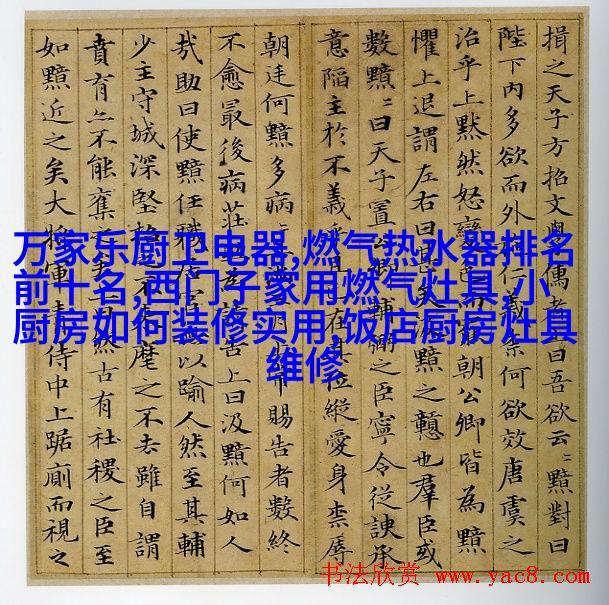 揖之天子方招文學儒者曰吾欲云〻黯對曰
陛下內多欲而外仁義奈何欲效唐虞之
治乎上默然怒變色而罷朝公卿皆為黯
懼上退謂左右曰甚矣汲黯之戇也羣臣或
數黯〻曰天子置輔弼之臣寧令從諛承
意陷主於不義乎且在其位縱愛身柰辱
朝廷何黯多病滿三月賜告者數終
不愈最後病莊助告上曰汲黯何如人
哉助曰使黯任職居官以踰人然至其輔
少主守城深堅不來麾之不去雖自謂
賁育亦不能奪之矣曰然古有社稷之臣至
如黯近之矣大將軍青侍中上踞廁而視之
万家乐厨卫电器,燃气热水器排名
前十名,西门子家用燃气灶具,小
厨房如何装修实用,饭店厨房灶具
维修
书法欣赏 www.yac8.com